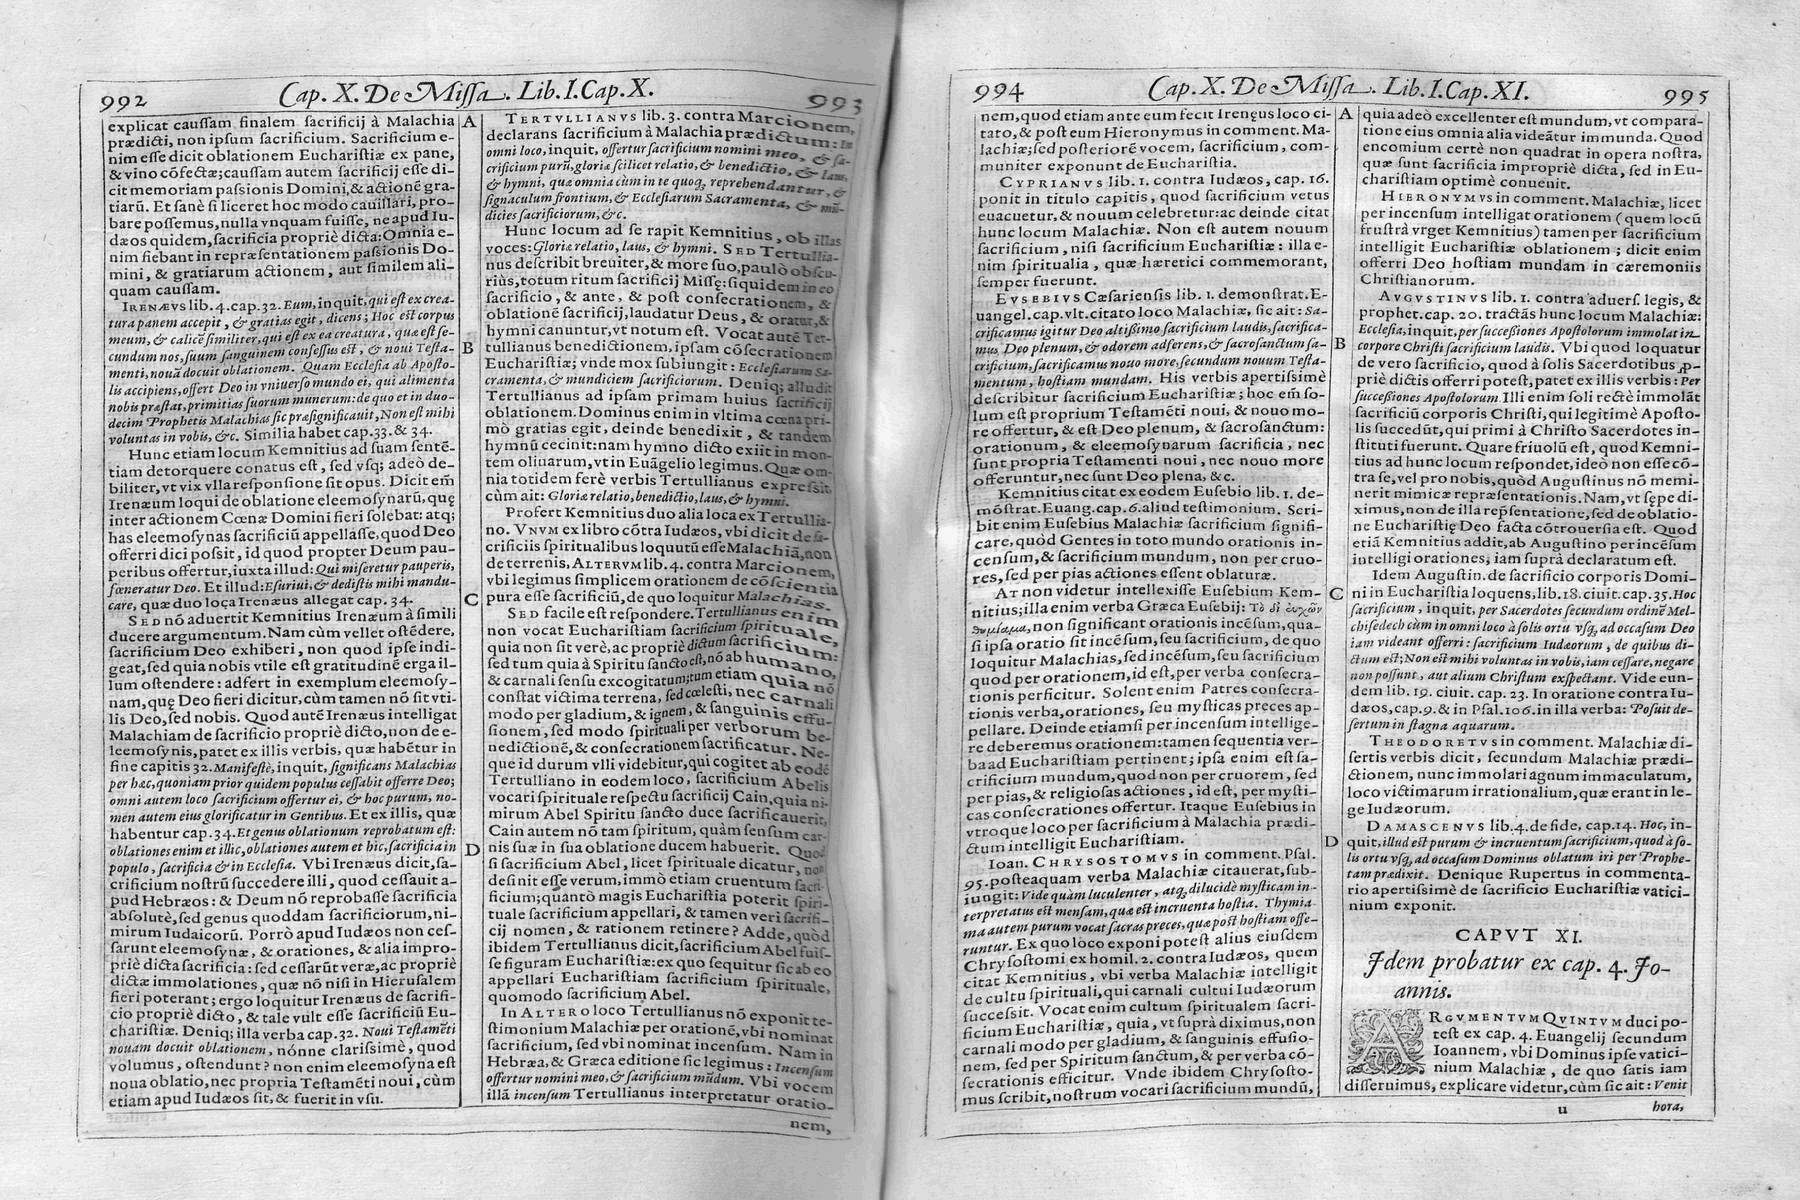 992
Cap. X. De Missa. Lib. I. Cap. X.
993
explicat caussam finalem sacrificij à Malachia
prædicti, non ipsum sacrificium. Sacrificium e-
nim esse dicit oblationem Eucharistiæ ex pane,
& vino cõfectæ; caussam autem sacrificij esse di-
cit memoriam passionis Domini, & actionē gra-
tiarū. Et sanè si liceret hoc modo cauillari, pro-
bare possemus, nulla vnquam fuisse, ne apud Iu-
dæos quidem, sacrificia propriè dicta: Omnia e-
nim fiebant in repræsentationem passionis Do-
mini, & gratiarum actionem, aut similem ali-
quam caussam.
IRENÆVS lib. 4. cap. 32. Eum, inquit, qui est ex crea-
tura panem accepit, & gratias egit, dicens; Hoc est corpus
meum, & calicē similiter, qui est ex ea creatura, quæ est se-
cundum nos, suum sanguinem confessus est, & noui Testa-
menti, nouā docuit oblationem. Quam Ecclesia ab Aposto-
lis accipiens, offert Deo in vniuerso mundo ei, qui alimenta
nobis præstat, primitias suorum munerum: de quo et in duo-
decim Prophetis Malachias sic præsignificauit, Non est mihi
voluntas in vobis, &c. Similia habet cap. 33. & 34.
Hunc etiam locum Kemnitius ad suam sentē-
tiam detorquere conatus est, sed vsq; adeò de-
biliter, vt vix vlla responsione sit opus. Dicit em̄
Irenæum loqui de oblatione eleemosynarū, quę
inter actionem Cœnæ Domini fieri solebat: atq;
has eleemosynas sacrificiū appellasse, quod Deo
offerri dici possit, id quod propter Deum pau-
peribus offertur, iuxta illud: Qui miseretur pauperis,
fœneratur Deo. Et illud: Esuriui, & dedistis mihi mandu-
care, quæ duo loca Irenæus allegat cap. 34.
SED nō aduertit Kemnitius Irenæum à simili
ducere argumentum. Nam cùm vellet ostēdere,
sacrificium Deo exhiberi, non quod ipse indi-
geat, sed quia nobis vtile est gratitudinē erga il-
lum ostendere: adfert in exemplum eleemosy-
nam, quę Deo fieri dicitur, cùm tamen nō sit vti-
lis Deo, sed nobis. Quod autē Irenæus intelligat
Malachiam de sacrificio propriè dicto, non de e-
leemosynis, patet ex illis verbis, quæ habētur in
fine capitis 32. Manifestè, inquit, significans Malachias
per hæc, quoniam prior quidem populus cessabit offerre Deo;
omni autem loco sacrificium offertur ei, & hoc purum, no-
men autem eius glorificatur in Gentibus. Et ex illis, quæ
habentur cap. 34. Et genus oblationum reprobatum est:
oblationes enim et illic, oblationes autem et hic, sacrificia in
populo, sacrificia & in Ecclesia. Vbi Irenæus dicit, sa-
crificium nostrū succedere illi, quod cessauit a-
pud Hebræos: & Deum nō reprobasse sacrificia
absolutè, sed genus quoddam sacrificiorum, ni-
mirum Iudaicorū. Porrò apud Iudæos non ces-
sarunt eleemosynæ, & orationes, & alia impro-
priè dicta sacrificia: sed cessarūt veræ, ac propriè
dictæ immolationes, quæ nō nisi in Hierusalem
fieri poterant; ergo loquitur Irenæus de sacrifi-
cio propriè dicto, & tale vult esse sacrificiū Eu-
charistiæ. Deniq; illa verba cap. 32. Noui Testamēti
nouam docuit oblationem, nónne clarissimè, quod
volumus, ostendunt? non enim eleemosyna est
noua oblatio, nec propria Testamēti noui, cùm
etiam apud Iudæos sit, & fuerit in vsu.
A
B
C
D
TERTVLLIANVS lib. 3. contra Marcionem,
declarans sacrificium à Malachia prædictum: In
omni loco, inquit, offertur sacrificium nomini meo, & sa-
crificium purū, gloriæ scilicet relatio, & benedictio, & laus,
& hymni, quæ omnia cùm in te quoq, reprehendantur, &
signaculum frontium, & Ecclesiarum Sacramenta, & mū-
dicies sacrificiorum, &c.
Hunc locum ad se rapit Kemnitius, ob illas
voces: Gloriæ relatio, laus, & hymni. SED Tertullia-
nus describit breuiter, & more suo, paulò obscu-
riùs, totum ritum sacrificij Missę: siquidem in eo
sacrificio, & ante, & post consecrationem, &
oblationē sacrificij, laudatur Deus, & oratur, &
hymni canuntur, vt notum est. Vocat autē Ter-
tullianus benedictionem, ipsam cōsecrationem
Eucharistiæ; vnde mox subiungit: Ecclesiarum Sa-
cramenta, & mundiciem sacrificiorum. Deniq; alludit
Tertullianus ad ipsam primam huius sacrificij
oblationem. Dominus enim in vltima cœna pri-
mò gratias egit, deinde benedixit, & tandem
hymnū cecinit: nam hymno dicto exiit in mon-
tem oliuarum, vt in Euāgelio legimus. Quæ om-
nia totidem ferè verbis Tertullianus expressit,
cùm ait: Gloriæ relatio, benedictio, laus, & hymni.
Profert Kemnitius duo alia loca ex Tertullia-
no. VNVM ex libro cōtra Iudæos, vbi dicit de sa-
crificiis spiritualibus loquutū esse Malachiā, non
de terrenis, ALTERVM lib. 4. contra Marcionem,
vbi legimus simplicem orationem de cōscientia
pura esse sacrificiū, de quo loquitur Malachias.
SED facile est respondere. Tertullianus enim
non vocat Eucharistiam sacrificium spirituale,
quia non sit verè, ac propriè dictum sacrificium:
sed tum quia à Spiritu sancto est, nō ab humano,
& carnali sensu excogitatum; tum etiam quia nō
constat victima terrena, sed cœlesti, nec carnali
modo per gladium, & ignem, & sanguinis effu-
sionem, sed modo spirituali per verborum be-
nedictionē, & consecrationem sacrificatur. Ne-
que id durum vlli videbitur, qui cogitet ab eodē
Tertulliano in eodem loco, sacrificium Abelis
vocari spirituale respectu sacrificij Cain, quia ni-
mirum Abel Spiritu sancto duce sacrificauerit,
Cain autem nō tam spiritum, quàm sensum car-
nis suæ in sua oblatione ducem habuerit. Quod
si sacrificium Abel, licet spirituale dicatur, non
definit esse verum, immò etiam cruentum sacri-
ficium; quantò magis Eucharistia poterit spiri-
tuale sacrificium appellari, & tamen veri sacrifi-
cij nomen, & rationem retinere? Adde, quòd
ibidem Tertullianus dicit, sacrificium Abel fuis-
se figuram Eucharistiæ: ex quo sequitur sic ab eo
appellari Eucharistiam sacrificium spirituale,
quomodo sacrificium Abel.
In ALTERO loco Tertullianus nō exponit te-
stimonium Malachiæ per orationē, vbi nominat
sacrificium, sed vbi nominat incensum. Nam in
Hebræa, & Græca editione sic legimus: Incensum
offertur nomini meo, & sacrificium mūdum. Vbi vocem
illā incensum Tertullianus interpretatur oratio-
nem,
994
Cap. X. De Missa. Lib. I. Cap. XI.
995
nem, quod etiam ante eum fecit Irenęus loco ci-
tato, & post eum Hieronymus in comment. Ma-
lachiæ; sed posteriorē vocem, sacrificium, com-
muniter exponunt de Eucharistia.
CYPRIANVS lib. 1. contra Iudæos, cap. 16.
ponit in titulo capitis, quod sacrificium vetus
euacuetur, & nouum celebretur: ac deinde citat
hunc locum Malachiæ. Non est autem nouum
sacrificium, nisi sacrificium Eucharistiæ: illa e-
nim spiritualia, quæ hæretici commemorant,
semper fuerunt.
EVSEBIVS Cæsariensis lib. 1. demonstrat. E-
uangel. cap. vlt. citato loco Malachiæ, sic ait: Sa-
crificamus igitur Deo altissimo sacrificium laudis, sacrifica-
mus Deo plenum, & odorem adferens, & sacrosanctum sa-
crificium, sacrificamus nouo more, secundum nouum Testa-
mentum, hostiam mundam. His verbis apertissimè
describitur sacrificium Eucharistiæ; hoc em̄ so-
lum est proprium Testamēti noui, & nouo mo-
re offertur, & est Deo plenum, & sacrosanctum:
orationum, & eleemosynarum sacrificia, nec
sunt propria Testamenti noui, nec nouo more
offeruntur, nec sunt Deo plena, &c.
Kemnitius citat ex eodem Eusebio lib. 1. de-
mōstrat. Euang. cap. 6. aliud testimonium. Scri-
bit enim Eusebius Malachiæ sacrificium signifi-
care, quòd Gentes in toto mundo orationis in-
censum, & sacrificium mundum, non per cruo-
res, sed per pias actiones essent oblaturæ.
AT non videtur intellexisse Eusebium Kem-
nitius; illa enim verba Græca Eusebij: Τὸ δἰ εὐχῶν
θυμίαμα, non significant orationis incēsum, qua-
si ipsa oratio sit incēsum, seu sacrificium, de quo
loquitur Malachias, sed incēsum, seu sacrificium
quod per orationem, id est, per verba consecra-
tionis perficitur. Solent enim Patres consecra-
tionis verba, orationes, seu mysticas preces ap-
pellare. Deinde etiamsi per incensum intellige-
re deberemus orationem: tamen sequentia ver-
ba ad Eucharistiam pertinent; ipsa enim est sa-
crificium mundum, quod non per cruorem, sed
per pias, & religiosas actiones, id est, per mysti-
cas consecrationes offertur. Itaque Eusebius in
vtroque loco per sacrificium à Malachia prædi-
ctum intelligit Eucharistiam.
Ioan. CHRYSOSTOMVS in comment. Psal.
95. posteaquam verba Malachiæ citauerat, sub-
iungit: Vide quàm luculenter, atq, dilucidè mysticam in-
terpretatus est mensam, quæ est incruenta hostia. Thymia-
ma autem purum vocat sacras preces, quæ post hostiam offe-
runtur. Ex quo loco exponi potest alius eiusdem
Chrysostomi ex homil. 2. contra Iudæos, quem
citat Kemnitius, vbi verba Malachiæ intelligit
de cultu spirituali, qui carnali cultui Iudæorum
successit. Vocat enim cultum spiritualem sacri-
ficium Eucharistiæ, quia, vt suprà diximus, non
carnali modo per gladium, & sanguinis effusio-
nem, sed per Spiritum sanctum, & per verba cō-
secrationis efficitur. Vnde ibidem Chrysosto-
mus scribit, nostrum vocari sacrificium mundū,
A
B
C
D
quia adeò excellenter est mundum, vt compara-
tione eius omnia alia videātur immunda. Quod
encomium certè non quadrat in opera nostra,
quæ sunt sacrificia impropriè dicta, sed in Eu-
charistiam optimè conuenit.
HIERONYMVS in comment. Malachiæ, licet
per incensum intelligat orationem (quem locū
frustrà vrget Kemnitius) tamen per sacrificium
intelligit Eucharistiæ oblationem; dicit enim
offerri Deo hostiam mundam in cæremoniis
Christianorum.
AVGVSTINVS lib. 1. contra aduers. legis, &
prophet. cap. 20. tractās hunc locum Malachiæ:
Ecclesia, inquit, per successiones Apostolorum immolat in
corpore Christi sacrificium laudis. Vbi quod loquatur
de vero sacrificio, quod à solis Sacerdotibus ꝓ-
priè dictis offerri potest, patet ex illis verbis: Per
successiones Apostolorum. Illi enim soli rectè immolāt
sacrificiū corporis Christi, qui legitimè Aposto-
lis succedūt, qui primi à Christo Sacerdotes in-
stituti fuerunt. Quare friuolū est, quod Kemni-
tius ad hunc locum respondet, ideò non esse cō-
tra se, vel pro nobis, quòd Augustinus nō memi-
nerit mimicæ repræsentationis. Nam, vt sępe di-
ximus, non de illa rep̄sentatione, sed de oblatio-
ne Eucharistię Deo facta cōtrouersia est. Quod
etiā Kemnitius addit, ab Augustino per incēsum
intelligi orationes; iam suprà declaratum est.
Idem Augustin. de sacrificio corporis Domi-
ni in Eucharistia loquens, lib. 18. ciuit. cap. 35. Hoc
sacrificium, inquit, per Sacerdotes secundum ordinē Mel-
chisedech cùm in omni loco à solis ortu vsq, ad occasum Deo
iam videant offerri: sacrificium Iudæorum, de quibus di-
ctum est; Non est mihi voluntas in vobis, iam cessare, negare
non possunt, aut alium Christum exspectant. Vide eun-
dem lib. 19. ciuit. cap. 23. In oratione contra Iu-
dæos, cap. 9. & in Psal. 106. in illa verba: Posuit de-
sertum in stagna aquarum.
THEODORETVS in comment. Malachiæ di-
sertis verbis dicit, secundum Malachiæ prædi-
ctionem, nunc immolari agnum immaculatum,
loco victimarum irrationalium, quæ erant in le-
ge Iudæorum.
DAMASCENVS lib. 4. de fide, cap. 14. Hoc, in-
quit, illud est purum & incruentum sacrificium, quod à so-
lis ortu vsq, ad occasum Dominus oblatum iri per Prophe-
tam prædixit. Denique Rupertus in commenta-
rio apertissimè de sacrificio Eucharistiæ vatici-
nium exponit.
CAPVT XI.
Idem probatur ex cap. 4. Jo-
annis.
ARGVMENTVM QVINTVM duci po-
test ex cap. 4. Euangelij secundum
Ioannem, vbi Dominus ipse vatici-
nium Malachiæ, de quo satis iam
disseruimus, explicare videtur, cùm sic ait: Venit
u
hora,